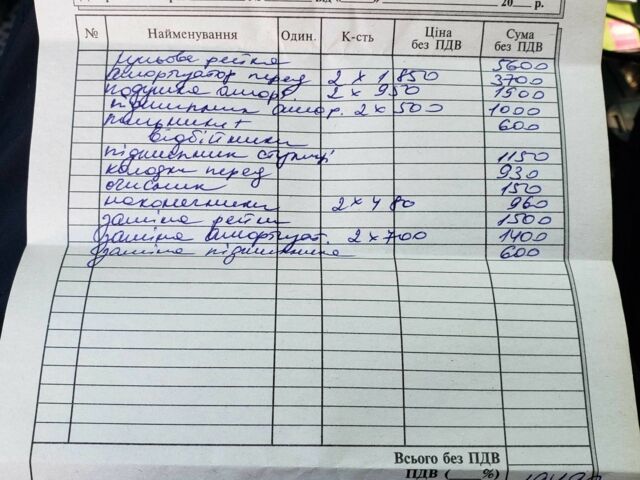 20 р.
№ Найменування Один. К-сть Ціна без ПДВ Сума без ПДВ
рульова рейка 5600
амортизатор перед 2 х 1850 3700
подушка аморт 2 х 950 1900
підшипник амор. 2 х 500 1000
пильники + 600
відбійники
підшипник ступиці 1150
колодки перед 930
очисник 150
наконечники 2 х 480 960
заміна рейки 1500
заміна амортизат. 2 х 700 1400
заміна підшипника 600
Всього без ПДВ
ПДВ ( %)